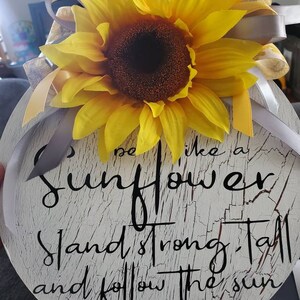 be like a
Sunflower
Stand strong, tall
and follow the sun